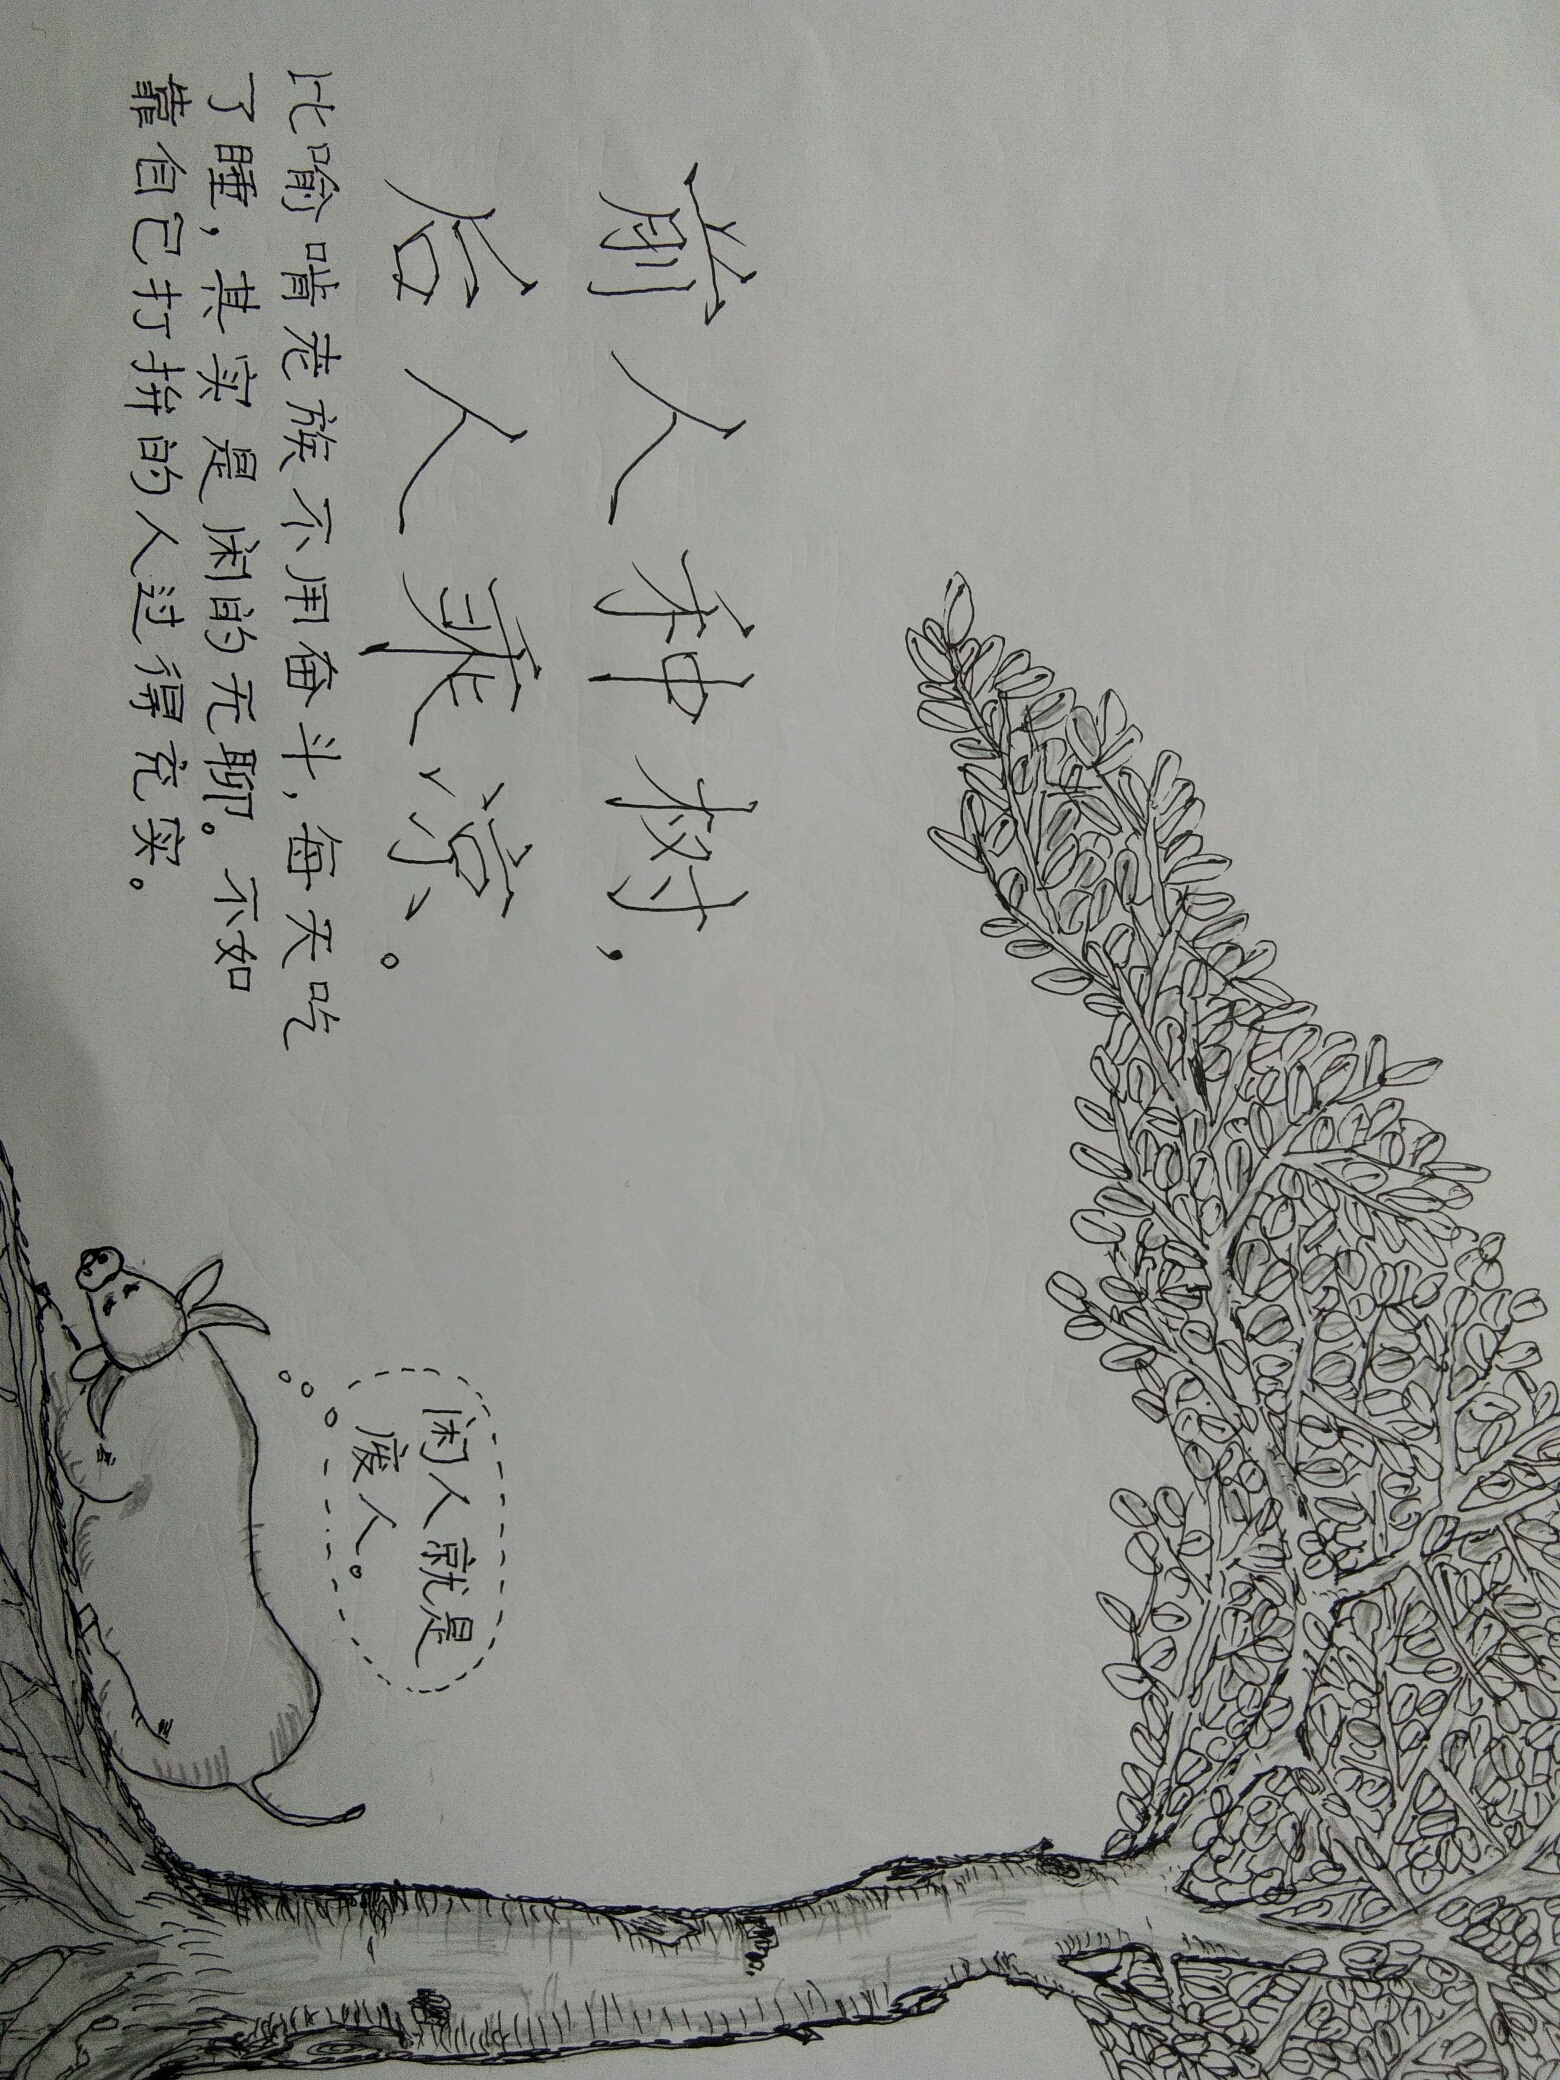 前人种树，
后人乘凉。
比喻啃老族不用奋斗，每天吃
了睡，其实是闲的无聊。不如
靠自己打拼的人过得充实。
闲人就是
废人。